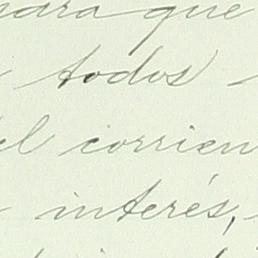 para que
todos
el corrien
interés,